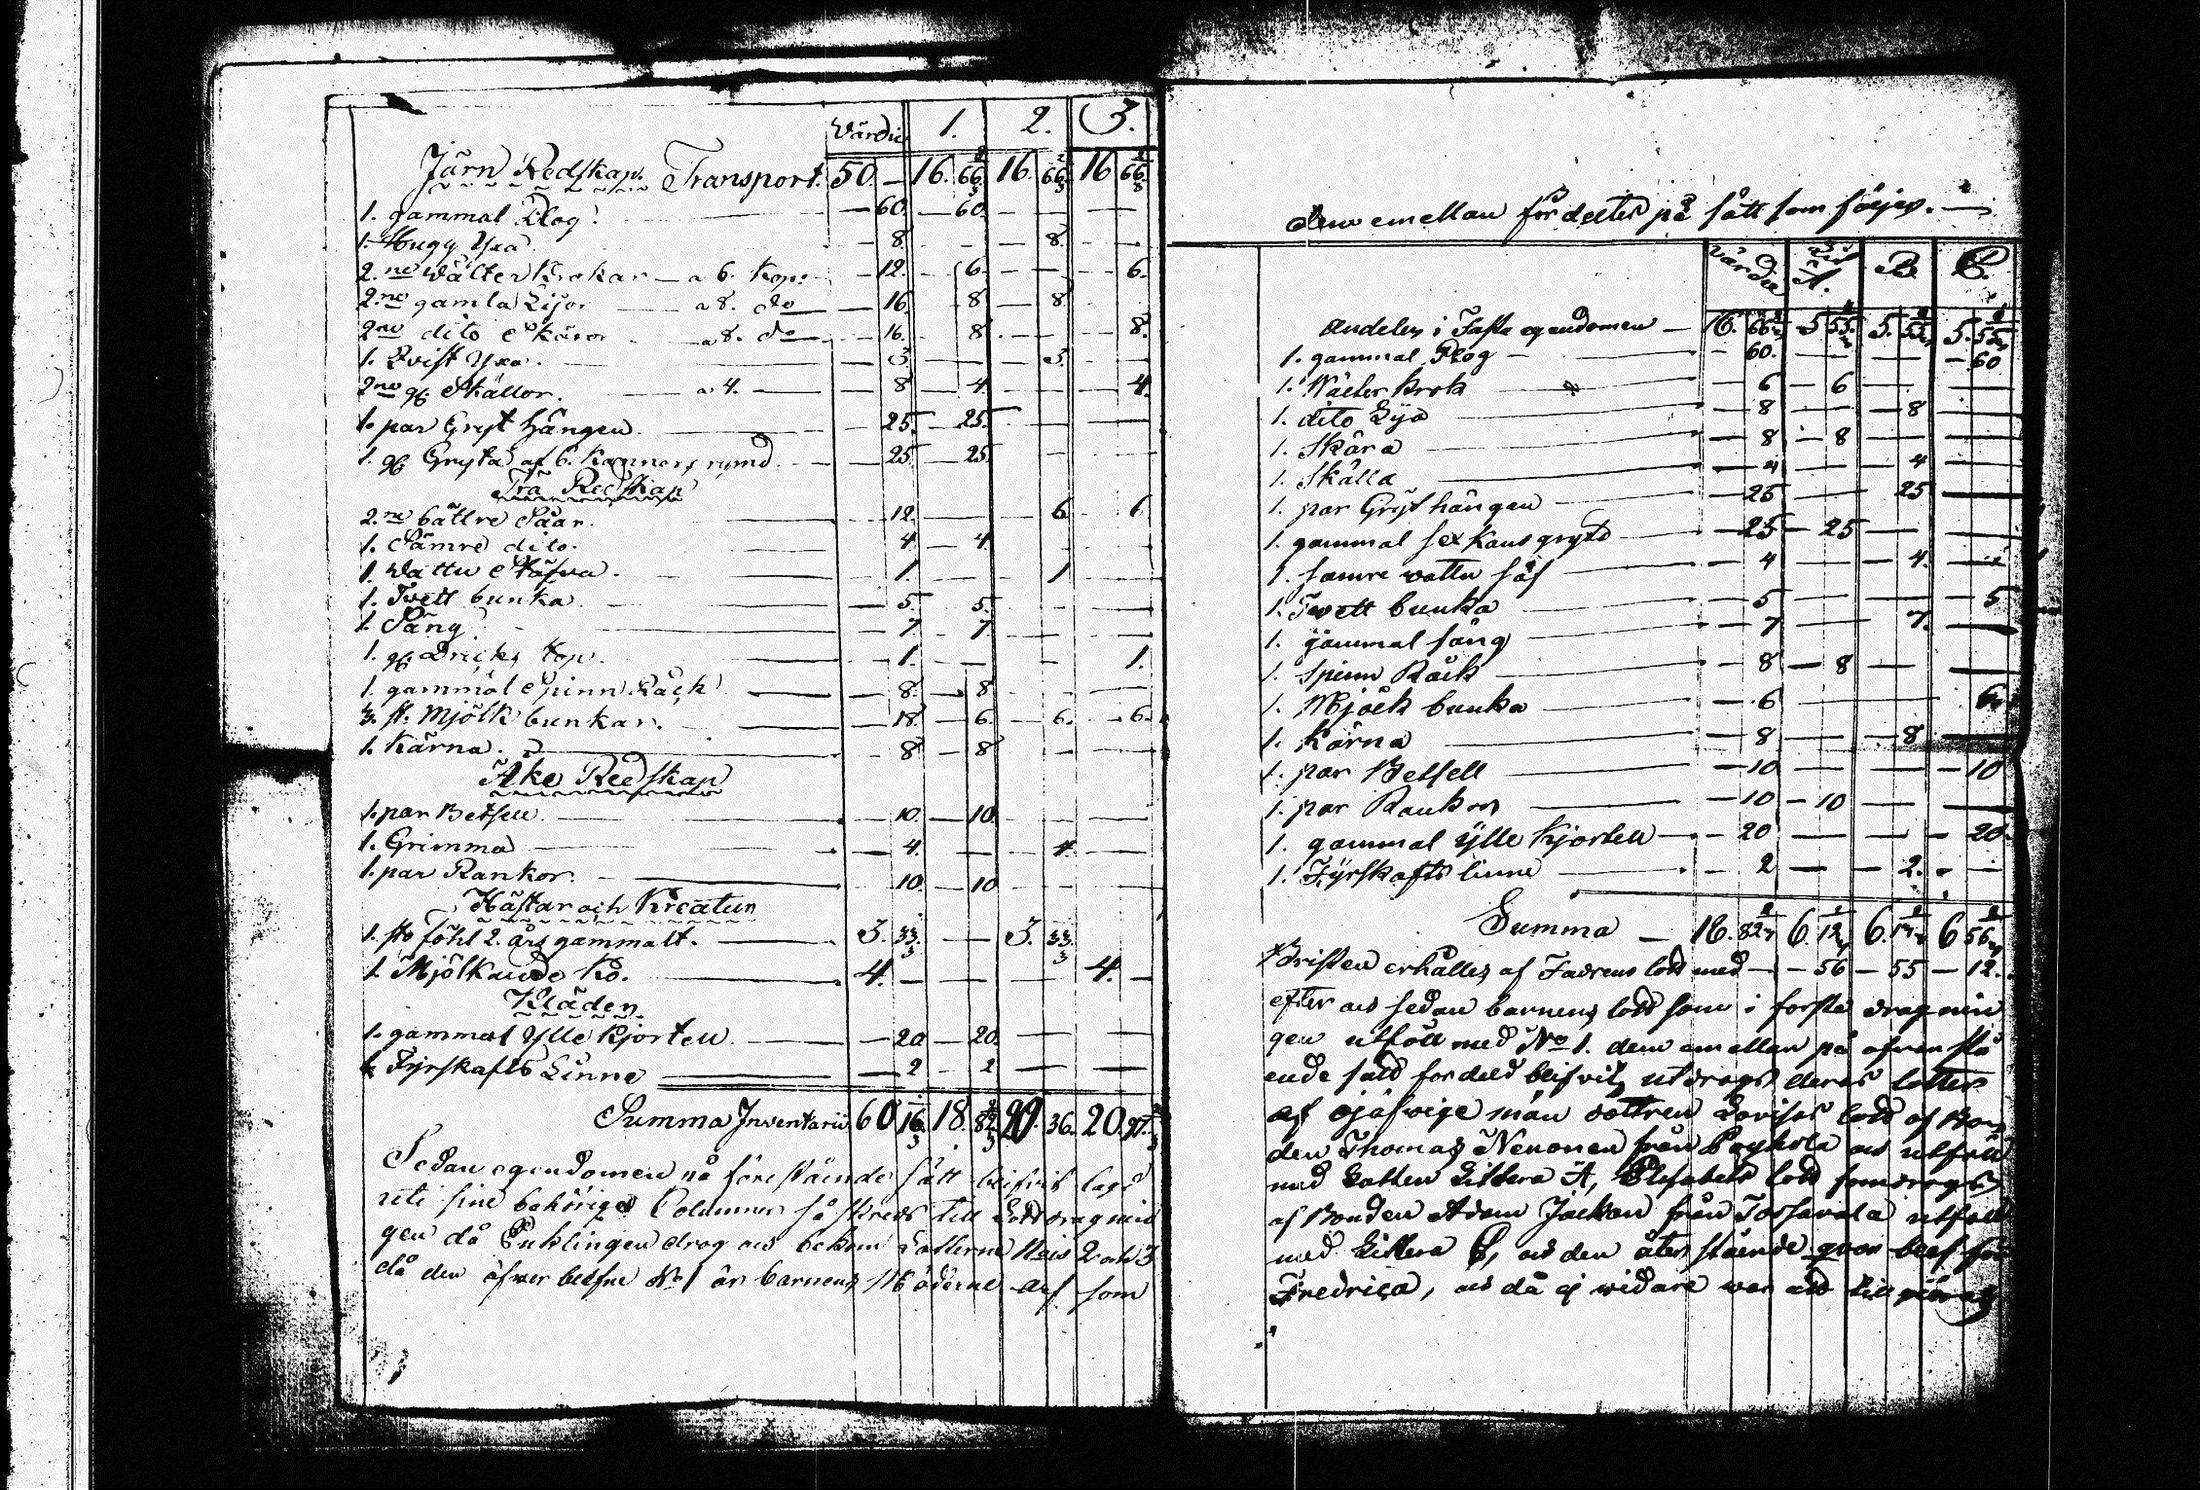 Värdie 1. 2. 3.
Järn Redskap. Transport. 50. — 16. 66 2/3 16. 66 2/3 16 66 2/3
1. gammal Plog. — 60. — 60. — — — —
1. Hugg Yxa — 8. — — — 8. — —
2.ne Wälter Krokar — a 6. Kop: — 12. — 6. — — — 6.
2.ne gamla Lijor — a 8. do — 16. 8 — 8
2ne dito Skäror — a 8. do — 16. 8. — — 8.
1. Qvist Yxa. — 3. — — 3.
2ne gl. Skällor. — a 4. — 8 — 4. — — 4.
1. par Gryt hängen. — 25. — 25. — — —
1. gl. Gryta af 6. Kannors rymd. — 25. — 25.
Trä Redskap
2.ne bättre Såar. — 12. — — 6. 6
1. Sämre dito. — 4. — 4.
1. Vattu Stäfva. — 1. — — 1
1. Tvett bunka. — 5. 5.
1. Säng. — 7 7
1. gl. Dricks Kop. — 1. — — 1.
1. gammal Spinn Råck — 8. — 8
3. st. Mjölk bunkar. — 18. — 6. — 6. — 6.
1. Kärna. — 8 — 8
Åke Redskap
1. par Betsell. — 10. — 10.
1. Grimma — 4. — — 4. —
1. par Rankor. — 10. — 10
Hästar och Kreatur
1. sto föhl 2. års gammalt. — 3. 33 1/3. — — 3. 33 1/3
1. Mjölkande Ko. — 4. — — — 4. —
Kläden
1. gammal Ylle Kjortell. — 20 — 20. — —
1. Fyrskafts Linne — 2 — 2 — —
Summa Inventarii 60 16 18. 82 20. 36. 20. 97.
Sedan egendomen på förestående sätt blifvit lagd
uti sine behörige Columner så skreds till Lottdragnin
gen då Enklingen drog och bekom Lotterne N:ris 2 och 3
då den öfver blefne No 1 är barnens Möderne arf som
dem emellan fördeltes på sätt som följer. —
värdie A. B. C.
Andelen i Fasta egendomen — 16. 66 2/3 5 55 5. 55 5. 55
1. gammal Plog — 60. — 60
1. Wälter krok — 6 — 6 — —
1. dito Lija — 8 — — 8 —
1. Skära — 8 — 8 — —
1. Skälla — 4 — — 4 —
1. par Gryt hängen — 25 — — 25 —
1. gammal sex Kans gryta — 25 — 25 — —
1. samre vattu såf — 4 — — 4. —
1. Tvett bunka — 5 — — — 5
1. gammal säng — 7 7. —
1. spinn Råck — 8 — 8 — —
1. Mjölk bunka — 6 6.
1. Kärna — 8 — — 8 —
1. par Betsell — 10 — — — 10
1. par Rankor — 10 — 10 — —
1. gammal ylle Kjortell — 20 — — — 20.
1. Fyrskafts linne — 2 — — 2. —
Summa — 18. 82 6. 12 6. 6 56
Bristen erhålles af Fadrens lott med — 56 — 55 — 12.
efter och sedan barnens lott som i forsta dragnin
gen utföll med No 1. dem emellan på ofvanstå
ende sätt fördeld blifvit, utdrogs deras lotter
af ojäfvige män dottren Lovisas lott af Bon
den Thomas Nenonen från Poykola och utföll
med Lotten Littera A, Elisabets lott som drogs
af Bonden Adam Jackan från Torsavala utföll
med Littera B, och den åter stående qvar blef för
Fredrica, och då ej widare war att till göras